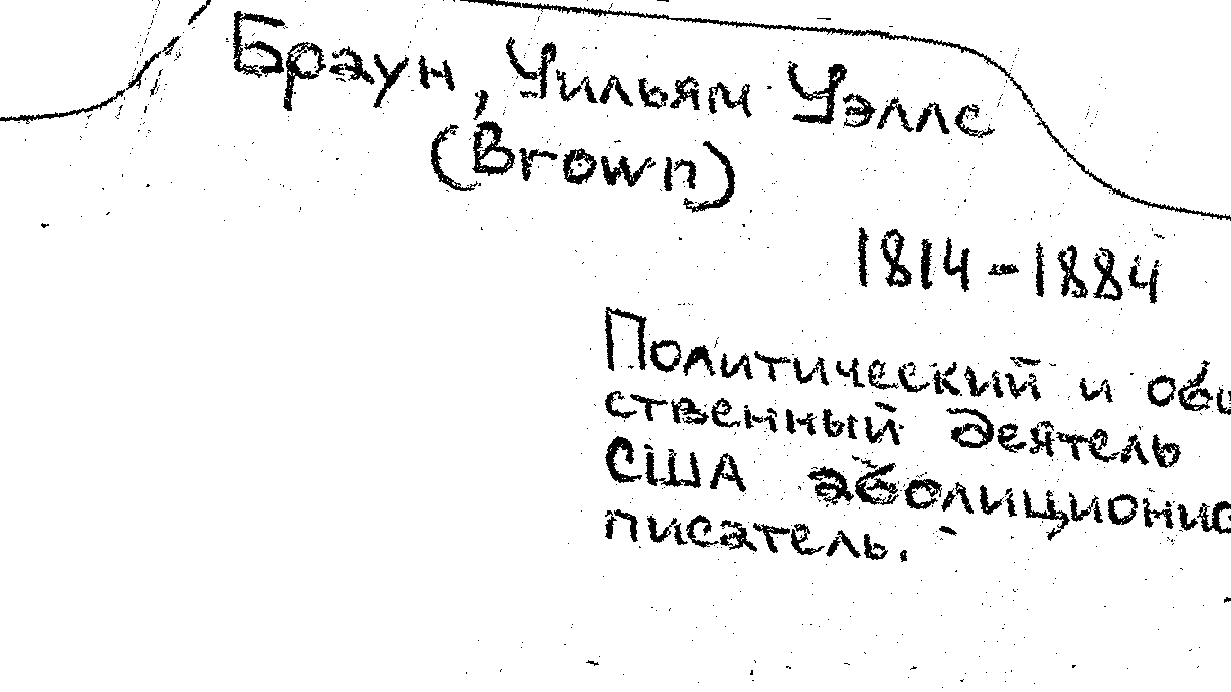 Браун, Уильям Уэллс
(Brown)
1814-1884
Политический и общ
ственный деятель
США аболиционис
писатель.